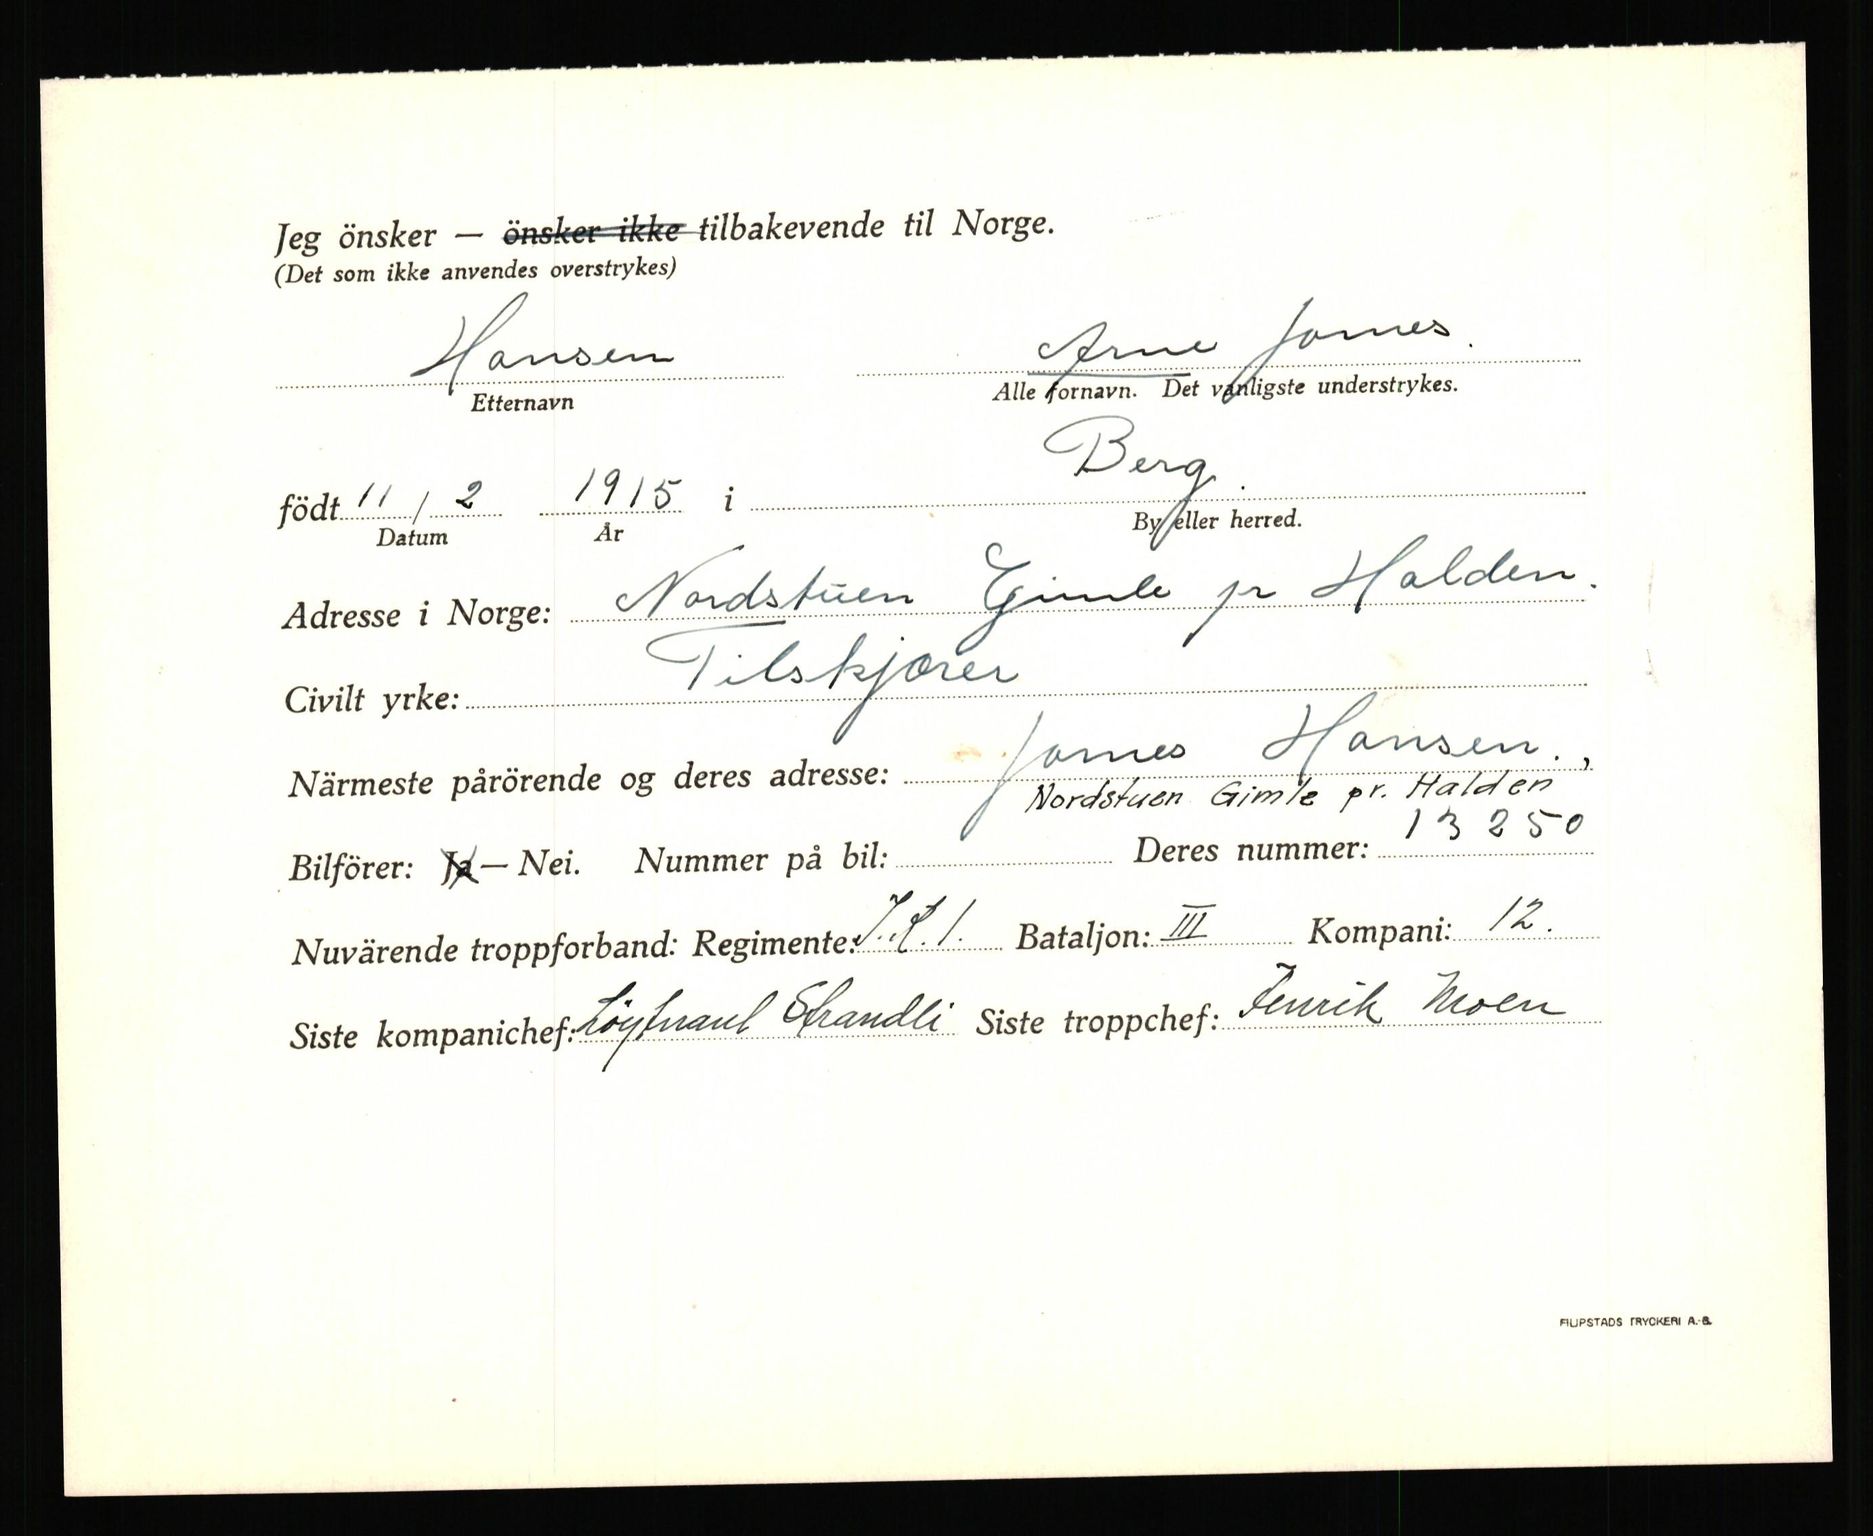 Jeg önsker — önsker ikke tilbakevende til Norge.
(Det som ikke anvendes overstrykes)
Hansen Arne James.
Etternavn Alle fornavn. Det vanligste understrykes.
födt 11 / 2 1915 i Berg.
Datum År By eller herred.
Adresse i Norge: Nordstuen Gimle pr Halden.
Civilt yrke: Tilskjærer
Närmeste pårörende og deres adresse: James Hansen.,
Nordstuen Gimle pr. Halden
Bilförer: Ja — Nei. Nummer på bil: Deres nummer: 13250
Nuvärende troppforband: Regimente: I.R.1. Bataljon: III Kompani: 12.
Siste kompanichef: Löytnant Strandli Siste troppchef: Fenrik Moen
FILIPSTADS TRYCKERI A.-B.